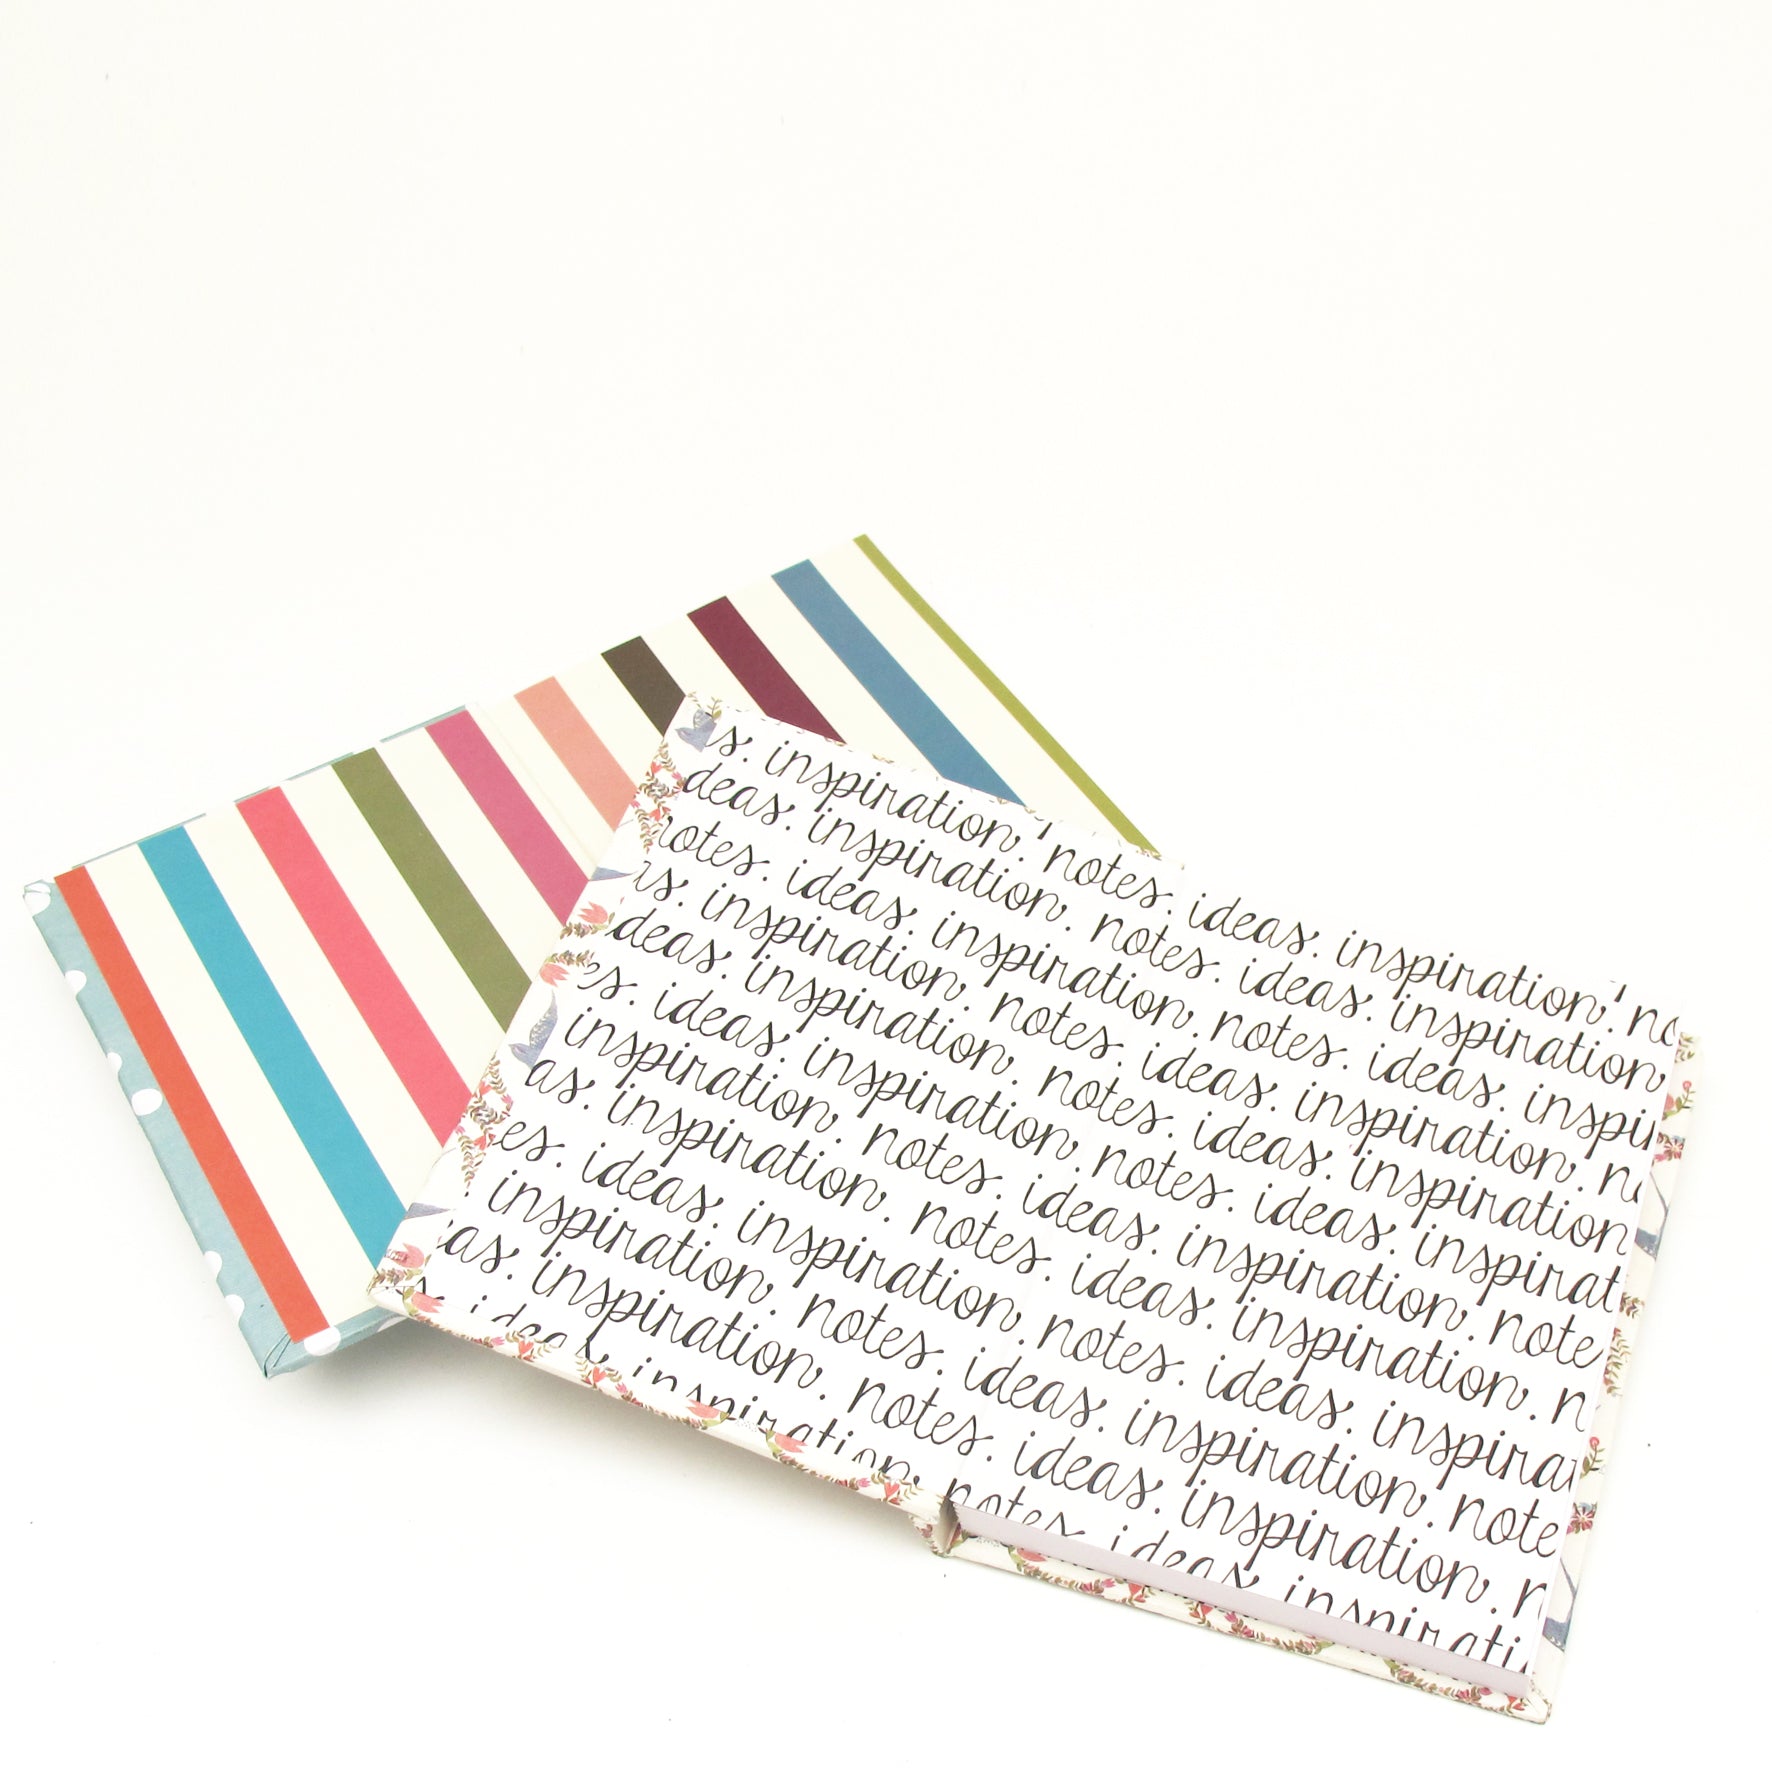 s. inspiration. notes. ideas. inspiration. no
deas. inspiration. notes. ideas. inspiration
notes. ideas. inspiration. notes. ideas. inspi
as. inspiration. notes. ideas. inspiration. n
deas. inspiration. notes. ideas. inspiration
es. ideas. inspiration. notes. ideas. inspirat
inspiration. notes. ideas. inspiration. note
as. inspiration. notes. ideas. inspiration. n
es. ideas. inspiration. notes. ideas. inspira
. inspiration. notes. ideas. inspiration. note
as. inspiration. notes. ideas. inspiration. n
idea inspiration. notes. ideas. inspirati